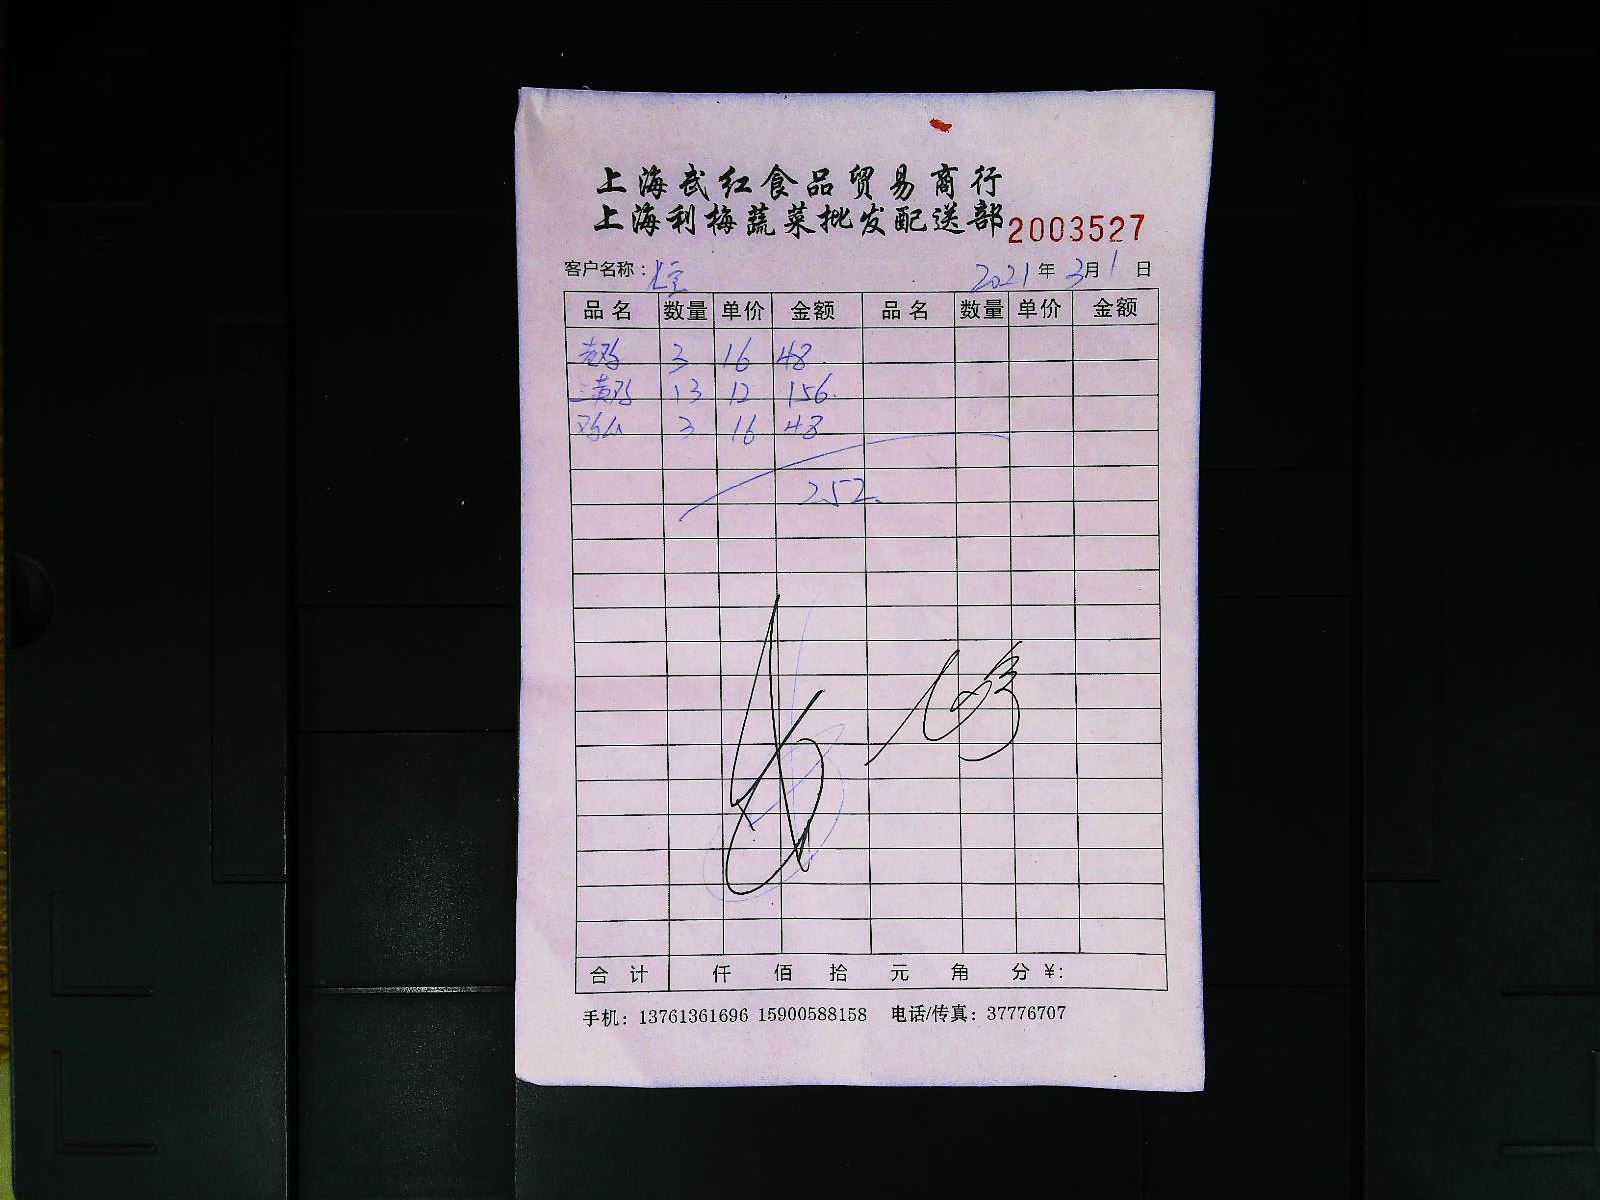 上海武红食品贸易商行
上海利梅蔬菜批发配送部 2003527
客户名称： 2021年3月1日
品名 数量 单价 金额 品名 数量 单价 金额
老鸡 3 16 48.
三黄鸡 13 12 156.
鸡公 3 16 48
252.
合计 仟 佰 拾 元 角 分 ¥:
手机：13761361696 15900588158 电话/传真：37776707